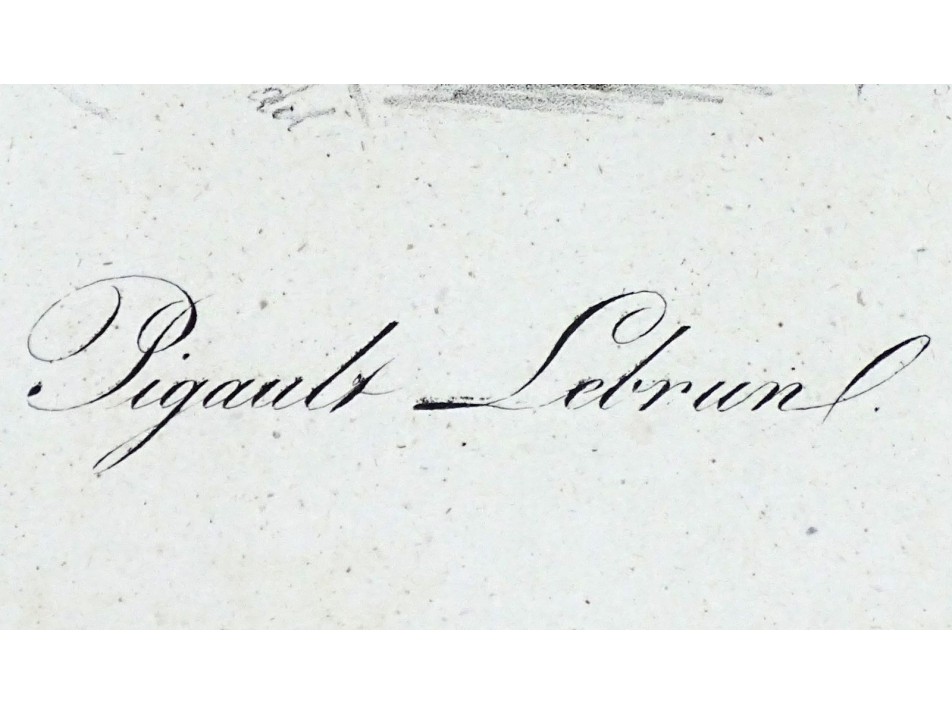 del
Pigault_Lebrun.